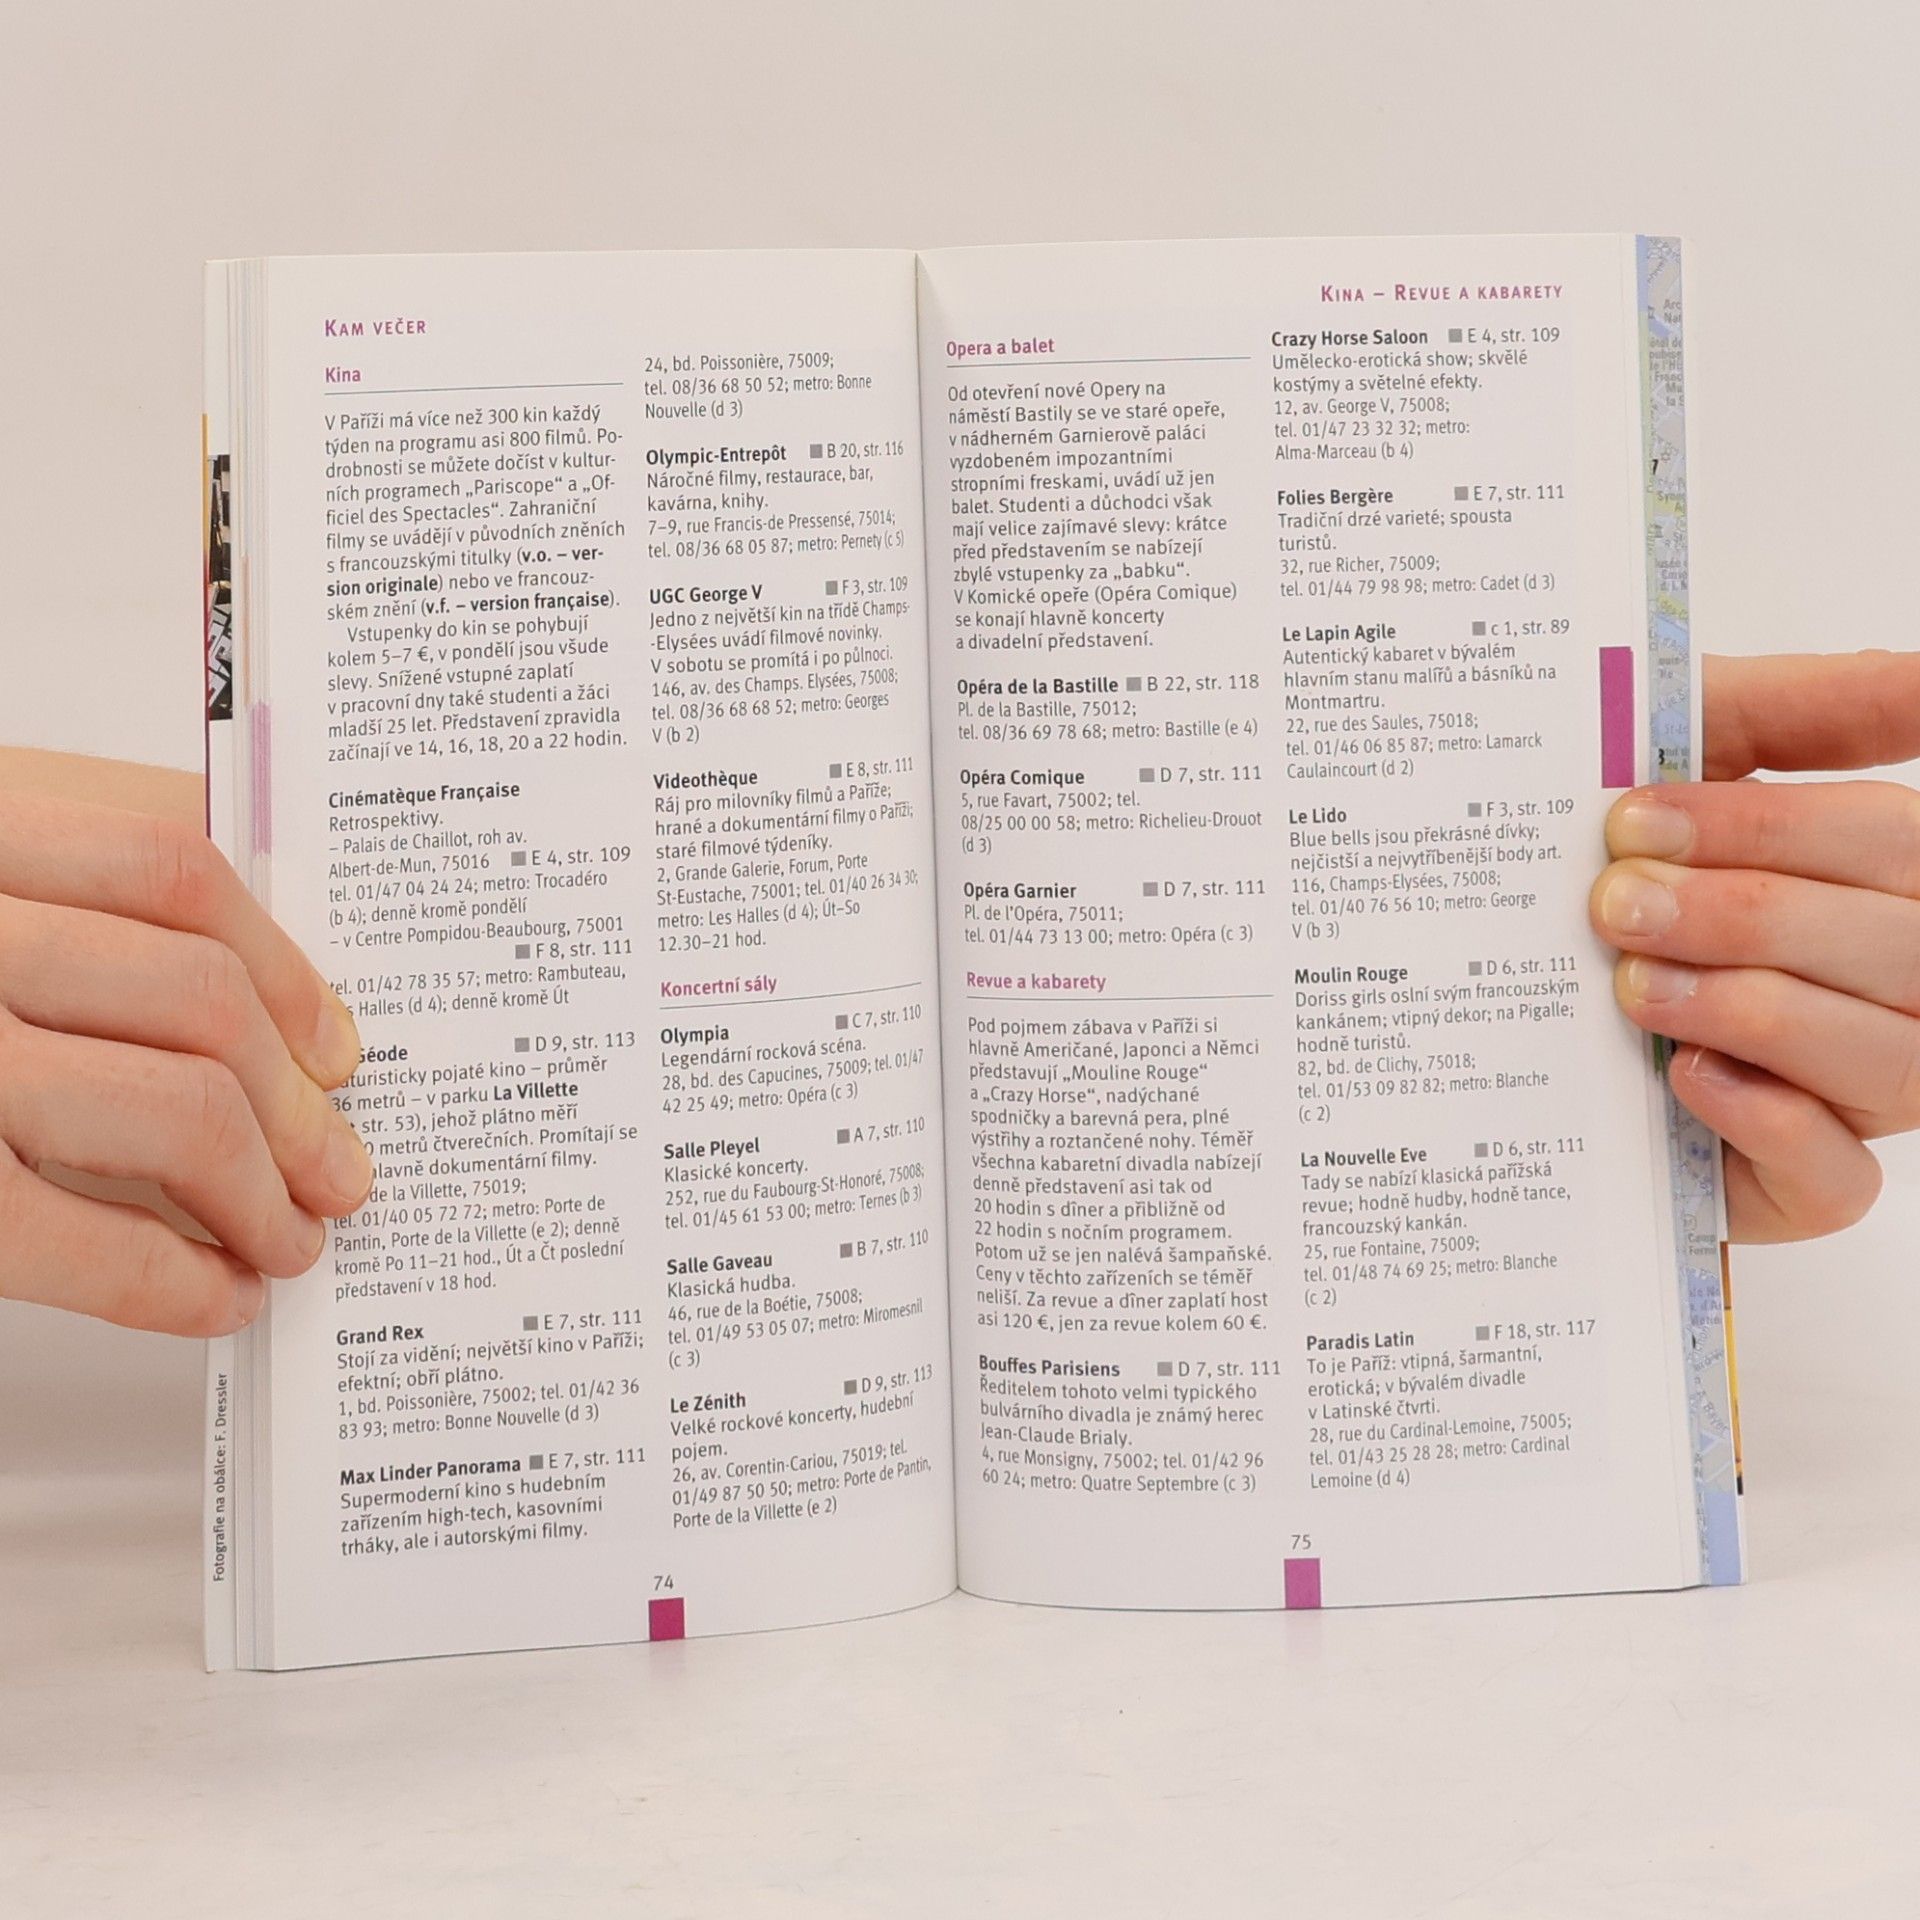 KAM VEČER
Kina
V Paříži má více než 300 kin každý
týden na programu asi 800 filmů. Po-
drobnosti se můžete dočíst v kultur-
ních programech „Pariscope“ a „Of-
ficiel des Spectacles“. Zahraniční
filmy se uvádějí v původních zněních
s francouzskými titulky (v.o. – ver-
sion originale) nebo ve francouz-
ském znění (v.f. – version française).
Vstupenky do kin se pohybují
kolem 5–7 €, v pondělí jsou všude
slevy. Snížené vstupné zaplatí
v pracovní dny také studenti a žáci
mladší 25 let. Představení zpravidla
začínají ve 14, 16, 18, 20 a 22 hodin.
Cinématèque Française
Retrospektivy.
– Palais de Chaillot, roh av.
Albert-de-Mun, 75016 ■ E 4, str. 109
tel. 01/47 04 24 24; metro: Trocadéro
(b 4); denně kromě pondělí
– v Centre Pompidou-Beaubourg, 75001
■ F 8, str. 111
tel. 01/42 78 35 57; metro: Rambuteau,
Halles (d 4); denně kromě Út
Géode ■ D 9, str. 113
pojaté kino – průměr
36 metrů – v parku La Villette
str. 53), jehož plátno měří
metrů čtverečních. Promítají se
hlavně dokumentární filmy.
de la Villette, 75019;
tel. 01/40 05 72 72; metro: Porte de
Pantin, Porte de la Villette (e 2); denně
kromě Po 11–21 hod., Út a Čt poslední
představení v 18 hod.
Grand Rex ■ E 7, str. 111
Stojí za vidění; největší kino v Paříži;
efektní; obří plátno.
1, bd. Poissonière, 75002; tel. 01/42 36
83 93; metro: Bonne Nouvelle (d 3)
Max Linder Panorama ■ E 7, str. 111
Supermoderní kino s hudebním
zařízením high-tech, kasovními
trháky, ale i autorskými filmy.
24, bd. Poissonière, 75009;
tel. 08/36 68 50 52; metro: Bonne
Nouvelle (d 3)
Olympic-Entrepôt ■ B 20, str. 116
Náročné filmy, restaurace, bar,
kavárna, knihy.
7–9, rue Francis-de Pressensé, 75014;
tel. 08/36 68 05 87; metro: Pernety (c 5)
UGC George V ■ F 3, str. 109
Jedno z největší kin na třídě Champs-
-Elysées uvádí filmové novinky.
V sobotu se promítá i po půlnoci.
146, av. des Champs. Elysées, 75008;
tel. 08/36 68 68 52; metro: Georges
V (b 2)
Videothèque ■ E 8, str. 111
Ráj pro milovníky filmů a Paříže;
hrané a dokumentární filmy o Paříži;
staré filmové týdeníky.
2, Grande Galerie, Forum, Porte
St-Eustache, 75001; tel. 01/40 26 34 30;
metro: Les Halles (d 4); Út–So
12.30–21 hod.
Koncertní sály
Olympia ■ C 7, str. 110
Legendární rocková scéna.
28, bd. des Capucines, 75009; tel. 01/47
42 25 49; metro: Opéra (c 3)
Salle Pleyel ■ A 7, str. 110
Klasické koncerty.
252, rue du Faubourg-St-Honoré, 75008;
tel. 01/45 61 53 00; metro: Ternes (b 3)
Salle Gaveau ■ B 7, str. 110
Klasická hudba.
46, rue de la Boétie, 75008;
tel. 01/49 53 05 07; metro: Miromesnil
(c 3)
Le Zénith ■ D 9, str. 113
Velké rockové koncerty, hudební
pojem.
26, av. Corentin-Cariou, 75019; tel.
01/49 87 50 50; metro: Porte de Pantin,
Porte de la Villette (e 2)
74
Fotografie na obálce: F. Dressler
KINA – REVUE A KABARETY
Opera a balet
Od otevření nové Opery na
náměstí Bastily se ve staré opeře,
v nádherném Garnierově paláci
vyzdobeném impozantními
stropními freskami, uvádí už jen
balet. Studenti a důchodci však
mají velice zajímavé slevy: krátce
před představením se nabízejí
zbylé vstupenky za „babku“.
V Komické opeře (Opéra Comique)
se konají hlavně koncerty
a divadelní představení.
Opéra de la Bastille ■ B 22, str. 118
Pl. de la Bastille, 75012;
tel. 08/36 69 78 68; metro: Bastille (e 4)
Opéra Comique ■ D 7, str. 111
5, rue Favart, 75002; tel.
08/25 00 00 58; metro: Richelieu-Drouot
(d 3)
Opéra Garnier ■ D 7, str. 111
Pl. de l'Opéra, 75011;
tel. 01/44 73 13 00; metro: Opéra (c 3)
Revue a kabarety
Pod pojmem zábava v Paříži si
hlavně Američané, Japonci a Němci
představují „Mouline Rouge“
a „Crazy Horse“, nadýchané
spodničky a barevná pera, plné
výstřihy a roztančené nohy. Téměř
všechna kabaretní divadla nabízejí
denně představení asi tak od
20 hodin s dîner a přibližně od
22 hodin s nočním programem.
Potom už se jen nalévá šampaňské.
Ceny v těchto zařízeních se téměř
neliší. Za revue a dîner zaplatí host
asi 120 €, jen za revue kolem 60 €.
Bouffes Parisiens ■ D 7, str. 111
Ředitelem tohoto velmi typického
bulvárního divadla je známý herec
Jean-Claude Brialy.
4, rue Monsigny, 75002; tel. 01/42 96
60 24; metro: Quatre Septembre (c 3)
Crazy Horse Saloon ■ E 4, str. 109
Umělecko-erotická show; skvělé
kostýmy a světelné efekty.
12, av. George V, 75008;
tel. 01/47 23 32 32; metro:
Alma-Marceau (b 4)
Folies Bergère ■ E 7, str. 111
Tradiční drzé varieté; spousta
turistů.
32, rue Richer, 75009;
tel. 01/44 79 98 98; metro: Cadet (d 3)
Le Lapin Agile ■ c 1, str. 89
Autentický kabaret v bývalém
hlavním stanu malířů a básníků na
Montmartru.
22, rue des Saules, 75018;
tel. 01/46 06 85 87; metro: Lamarck
Caulaincourt (d 2)
Le Lido ■ F 3, str. 109
Blue bells jsou překrásné dívky;
nejčistší a nejvytříbenější body art.
116, Champs-Elysées, 75008;
tel. 01/40 76 56 10; metro: George
V (b 3)
Moulin Rouge ■ D 6, str. 111
Doriss girls oslní svým francouzským
kankánem; vtipný dekor; na Pigalle;
hodně turistů.
82, bd. de Clichy, 75018;
tel. 01/53 09 82 82; metro: Blanche
(c 2)
La Nouvelle Eve ■ D 6, str. 111
Tady se nabízí klasická pařížská
revue; hodně hudby, hodně tance,
francouzský kankán.
25, rue Fontaine, 75009;
tel. 01/48 74 69 25; metro: Blanche
(c 2)
Paradis Latin ■ F 18, str. 117
To je Paříž: vtipná, šarmantní,
erotická; v bývalém divadle
v Latinské čtvrti.
28, rue du Cardinal-Lemoine, 75005;
tel. 01/43 25 28 28; metro: Cardinal
Lemoine (d 4)
75